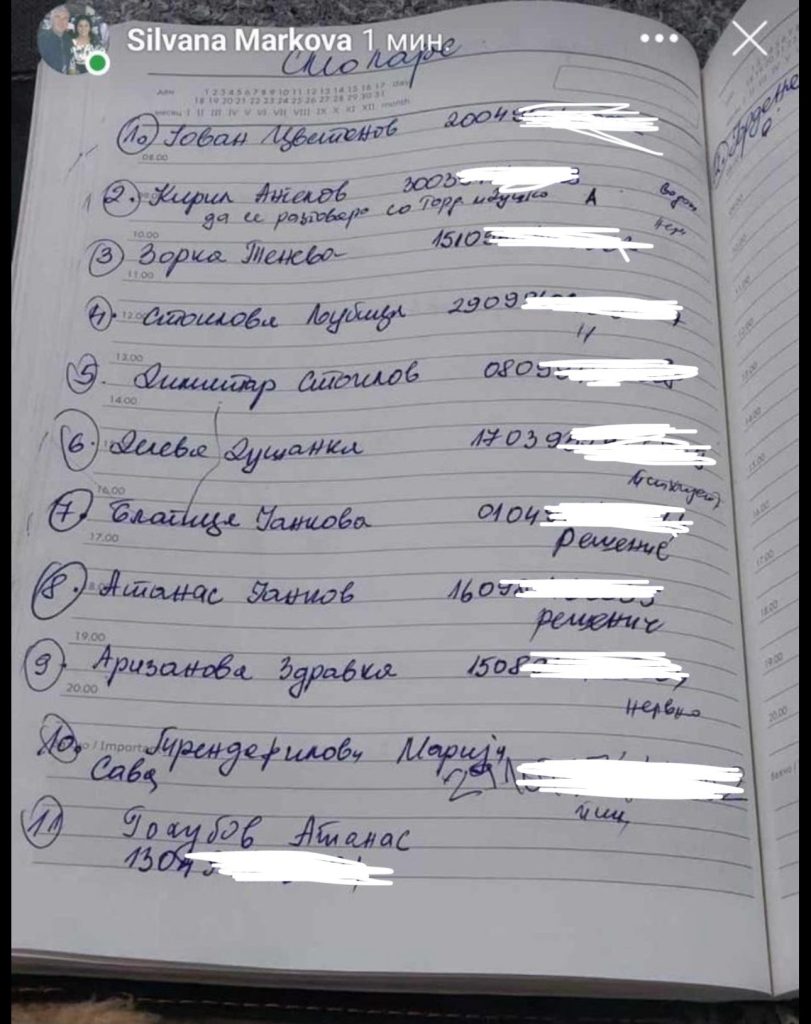 Silvana Markova 1 мин.
ден 1 2 3 4 5 6 7 8 9 10 11 12 13 14 15 16 17 day
18 19 20 21 22 23 24 25 26 27 28 29 30 31
месец I II III IV V VI VII VIII IX X XI XII month
1. Јован Цветанов 2004
08.00
2. Кирил Ангелов 3003
да се разговара со А
10.00
3 Зорка Тенева 1510
11.00
4. Стоилова Љубица 2909
12.00
13.00
5. Димитар Стоилов 080
14.00
6. Делева Душанка 17039
16.00
7. Благица Јанкова 0104
17.00
Решение
8. Атанас Јанков 160
решение
19.00
9. Аризанова Здравка 1508
20.00
нервно
10. Марија
Сава
11 Голубов Атанас
130